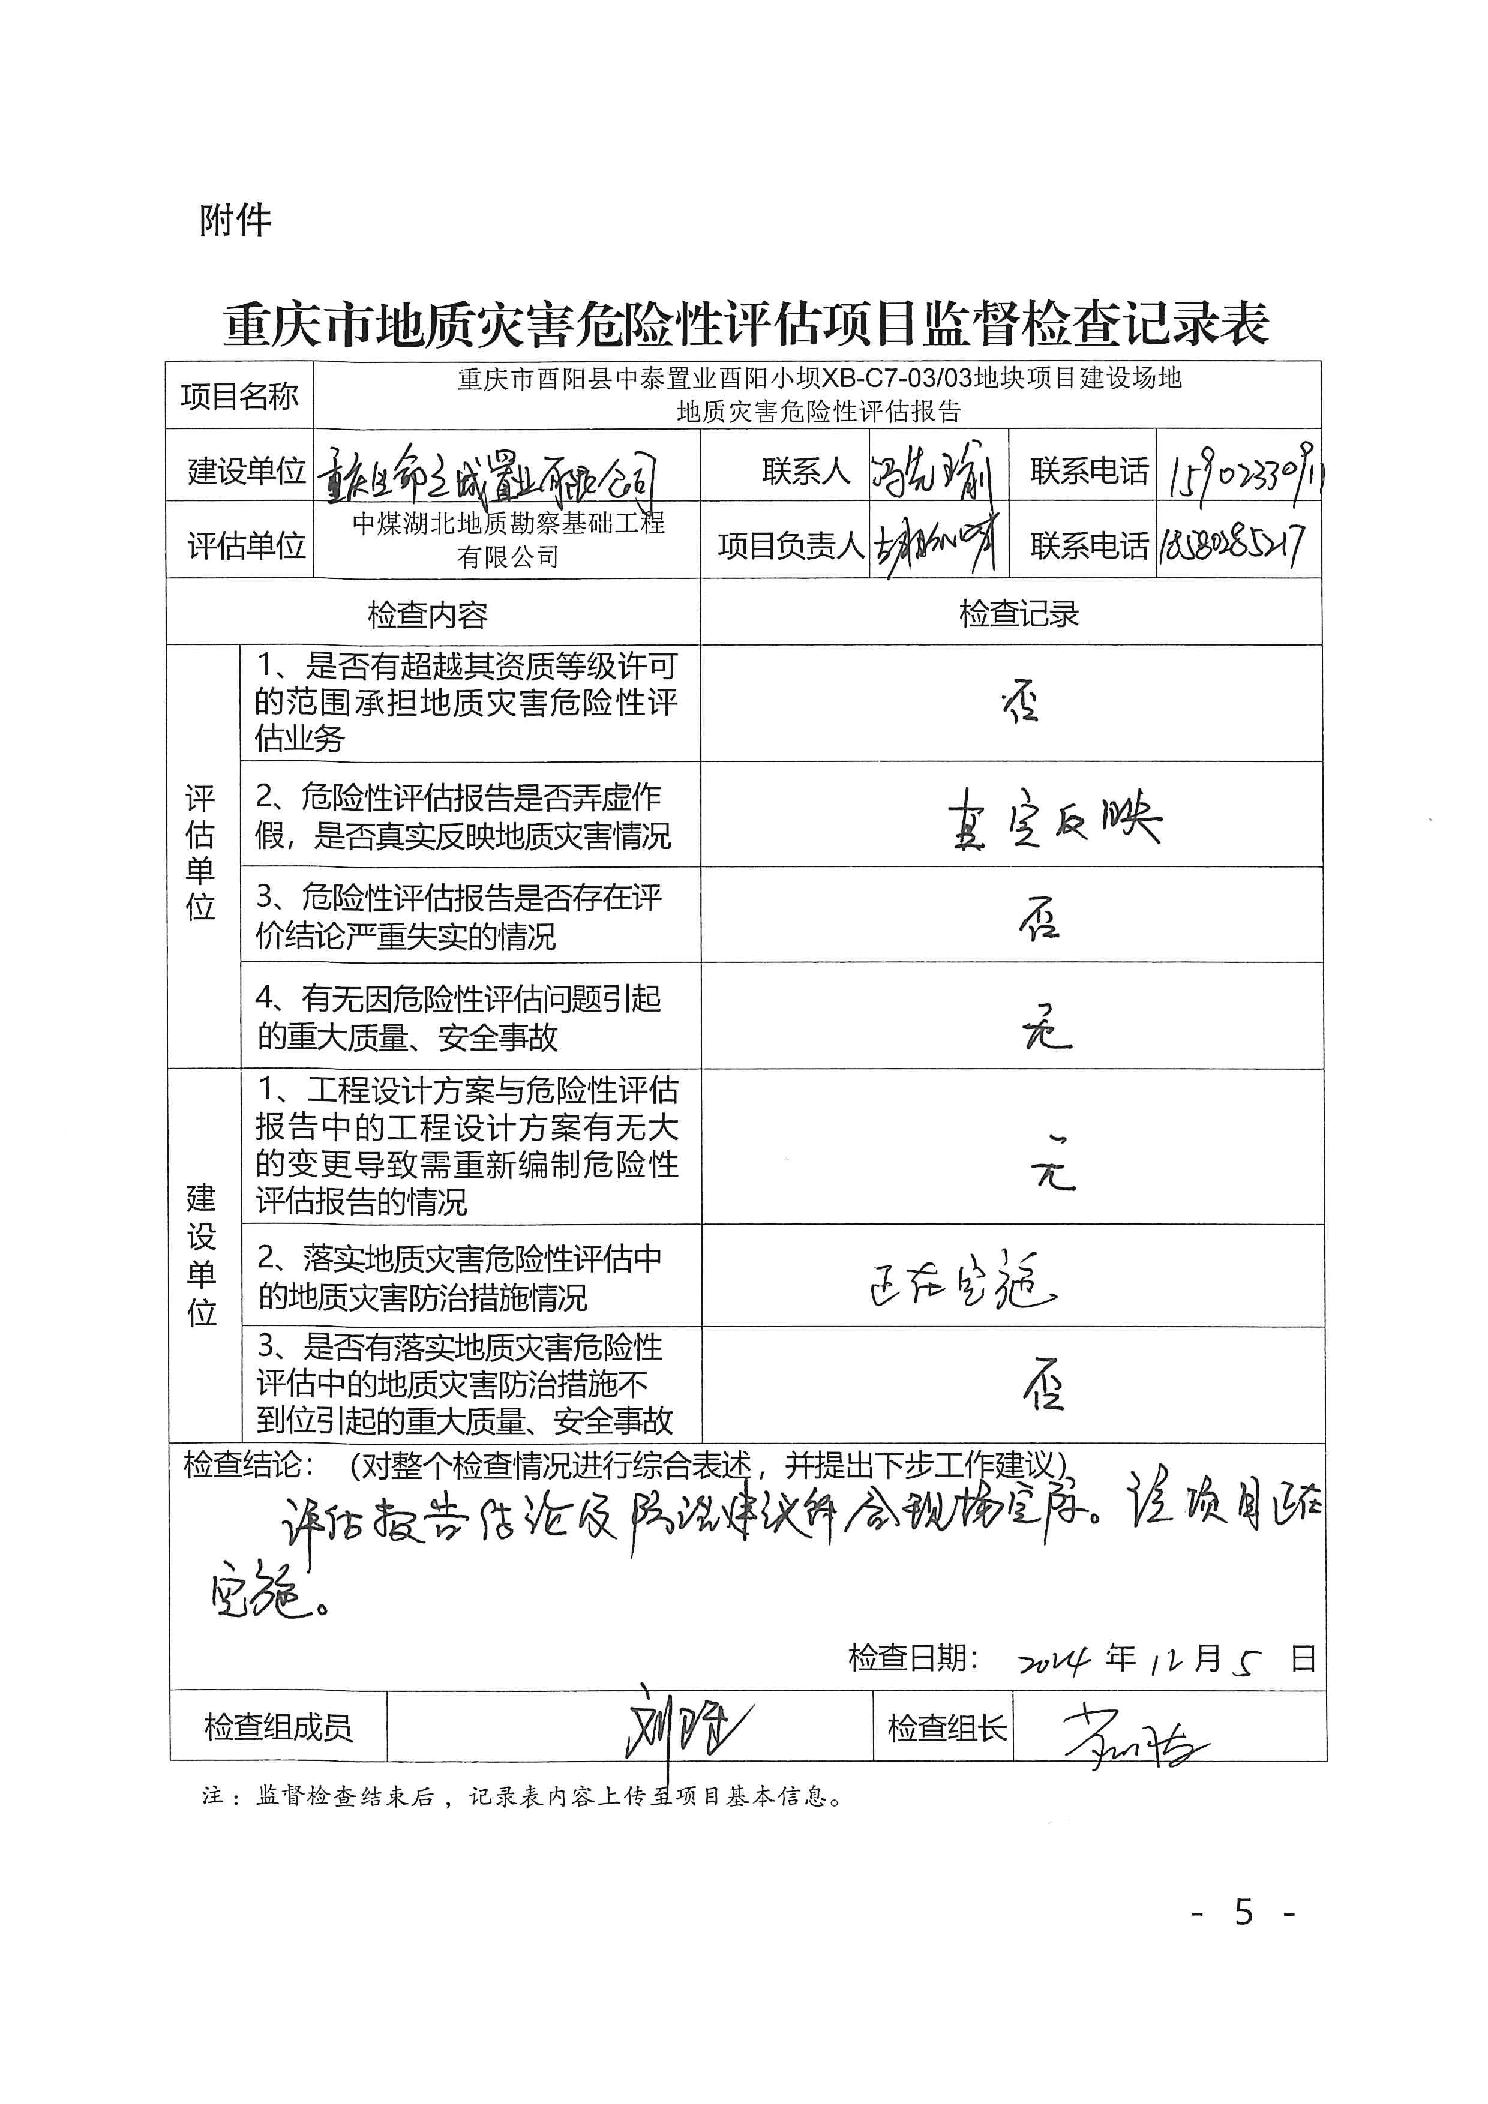 附件
重庆市地质灾害危险性评估项目监督检查记录表
项目名称
重庆市酉阳县中泰置业酉阳小坝XB-C7-03/03地块项目建设场地
地质灾害危险性评估报告
建设单位 重庆 之城置业有限公司 联系人 冯先 联系电话 15902330911
评估单位
中煤湖北地质勘察基础工程
有限公司
项目负责人 联系电话 18580285217
检查内容 检查记录
评估单位
1、是否有超越其资质等级许可
的范围承担地质灾害危险性评
估业务
否
2、危险性评估报告是否弄虚作
假，是否真实反映地质灾害情况
真实反映
3、危险性评估报告是否存在评
价结论严重失实的情况
否
4、有无因危险性评估问题引起
的重大质量、安全事故
无
建设单位
1、工程设计方案与危险性评估
报告中的工程设计方案有无大
的变更导致需重新编制危险性
评估报告的情况
无
2、落实地质灾害危险性评估中
的地质灾害防治措施情况
正在实施
3、是否有落实地质灾害危险性
评估中的地质灾害防治措施不
到位引起的重大质量、安全事故
否
检查结论：（对整个检查情况进行综合表述，并提出下步工作建议）
评估报告结论及防治建议符合现场实际。该项目正在
实施。
检查日期： 2024 年 12 月 5 日
检查组成员 刘 检查组长
注：监督检查结束后，记录表内容上传至项目基本信息。
- 5 -